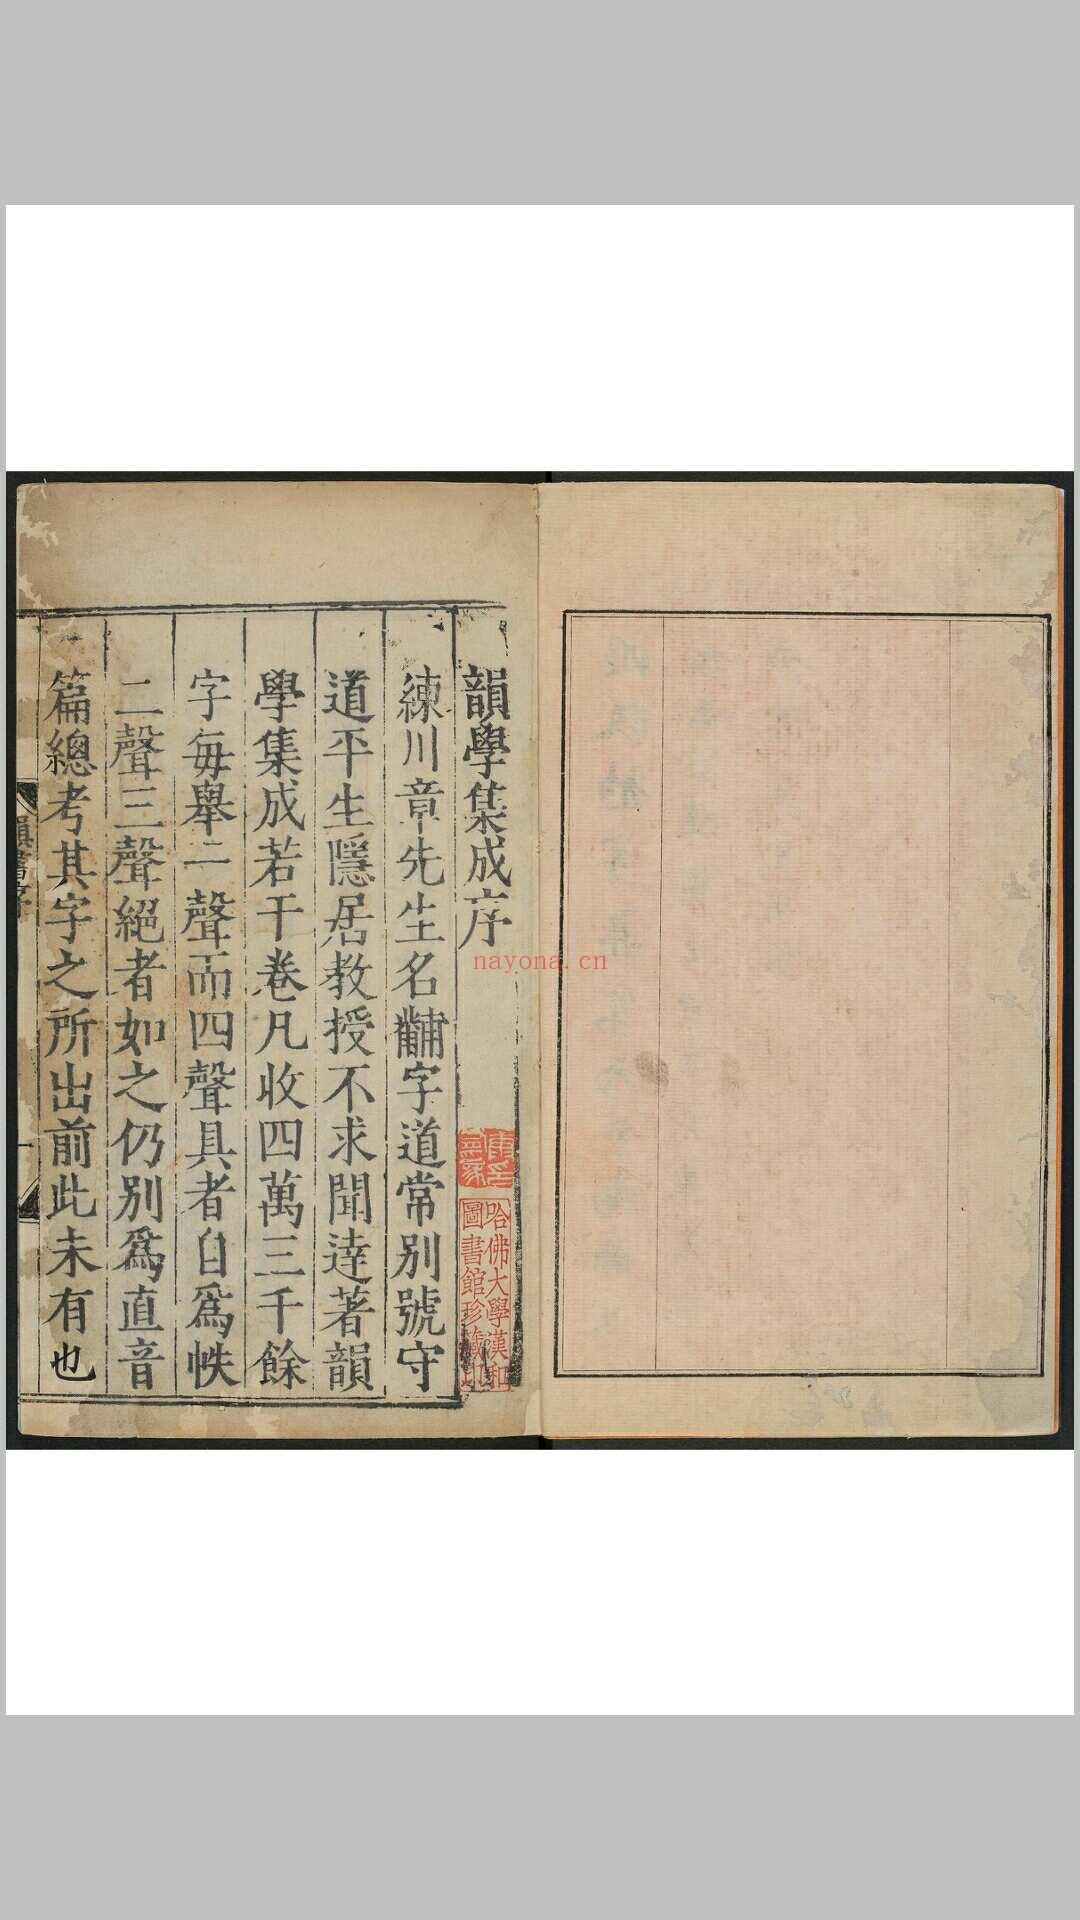 韻學集成序
練川章先生名黼字道常別號守
道平生隱居教授不求聞達著韻
學集成若干卷凡收四萬三千餘
字每舉一聲而四聲具者自爲帙
二聲三聲絕者如之仍別爲直音
篇總考其字之所出前此未有也
韻書序
哈佛大學漢和
圖書館珍藏印
nayona.cn